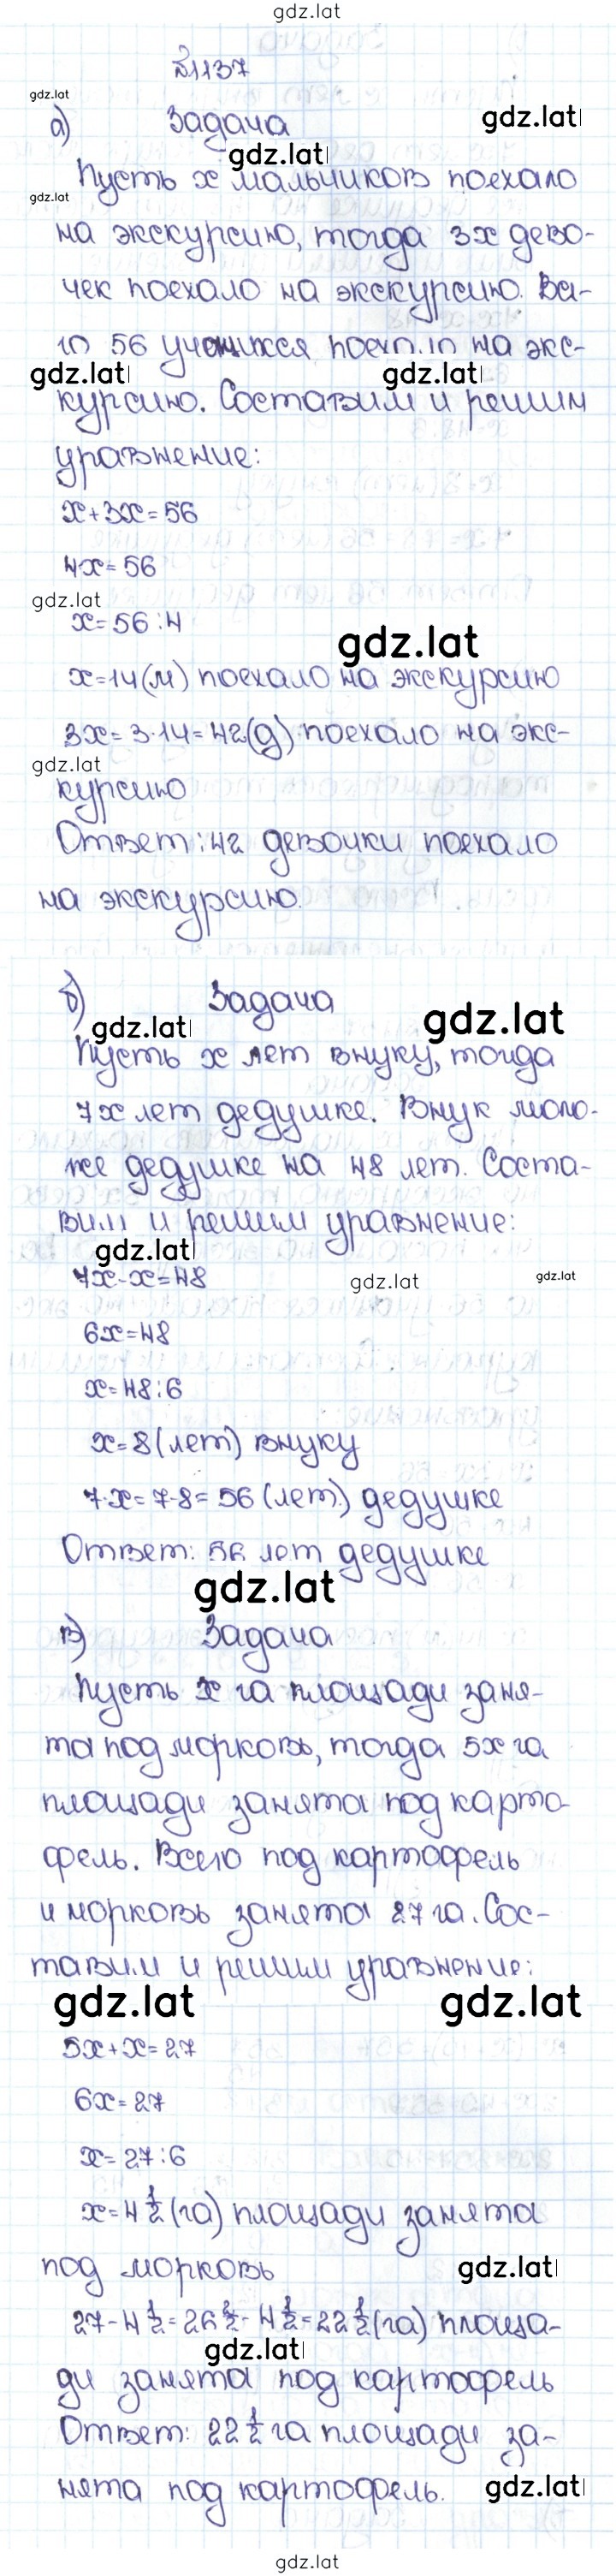 gdz.lat
№1137
gdz.lat
а) Задача gdz.lat
gdz.lat
Пусть х мальчиков поехало
gdz.lat
на экскурсию, тогда 3х дево-
чек поехало на экскурсию. Все-
го 56 учащихся поехало на экс-
gdz.lat gdz.lat
курсию. Составим и решим
уравнение:
х+3х=56
4х=56
gdz.lat
х=56:4
gdz.lat
х=14(м) поехало на экскурсию
3х=3·14=42(д) поехало на экс-
gdz.lat
курсию
Ответ: 42 девочки поехало
на экскурсию.
б) Задача gdz.lat
gdz.lat
Пусть х лет внуку, тогда
7х лет дедушке. Внук моло-
же дедушке на 48 лет. Соста-
вим и решим уравнение:
gdz.lat
7х-х=48 gdz.lat gdz.lat
6х=48
х=48:6
х=8(лет) внуку
7·х=7·8=56(лет) дедушке
Ответ: 56 лет дедушке
gdz.lat
в) Задача
Пусть х га площади заня-
та под морковь, тогда 5х га
площади занята под карто-
фель. Всего под картофель
и морковь занята 27 га. Сос-
тавим и решим уравнение:
gdz.lat gdz.lat
5х+х=27
6х=27
х=27:6
х=4 1/2 (га) площади занята
под морковь gdz.lat
27-4 1/2=26 2/2-4 1/2=22 1/2(га) площа-
gdz.lat
ди занята под картофель
Ответ: 22 1/2 га площади за-
нята под картофель. gdz.lat
gdz.lat